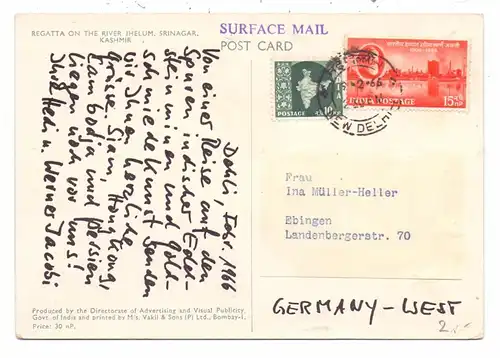 REGATTA ON THE RIVER JHELUM, SRINAGAR,
KASHMIR
SURFACE MAIL
POST CARD
Dehli, Febr. 1966
Von einer Reise auf den
Spuren indischer Edel-
stein minen und Gold-
schmiedekunst senden
wir Ihnen herzliche
Grüsse. Siam, Hongkong,
Cambodja und Persien
liegen noch vor uns!
Ihre Hedi u Werner Jacobi
POSTAGE
INDIA POSTAGE
15 nP.
NEW DELHI
Frau
Ina Müller-Heller
Ebingen
Landenbergerstr. 70
GERMANY-WEST
2.-
Produced by the Directorate of Advertising and Visual Publicity,
Govt. of India and printed by M/s. Vakil & Sons (P) Ltd., Bombay-1.
Price: 30 nP.